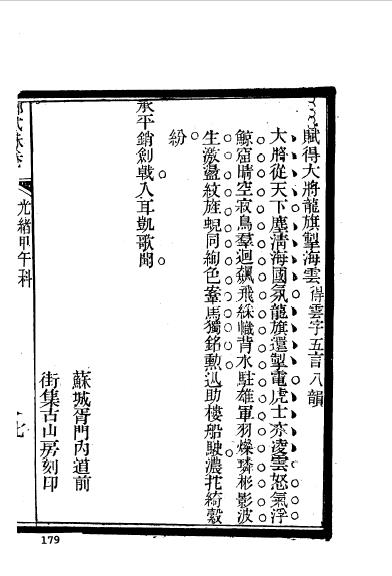 賦得大將龍旗掣海雲 得雲字五言八韻
大將從天下塵淸海國氛龍旗還掣電虎士亦凌雲怒氣浮
鯨窟晴空寂鳥羣迴飆飛綵幟背水駐雄軍羽爍璘彬影波
生瀲灩紋旌蜺同絢色騫馬獨銘勳迅助樓船駛濃拕綺縠
紛
承平銷劍戟入耳凱歌聞
蘇城胥門內道前
街集古山房刻印
光緒甲午科
七
179